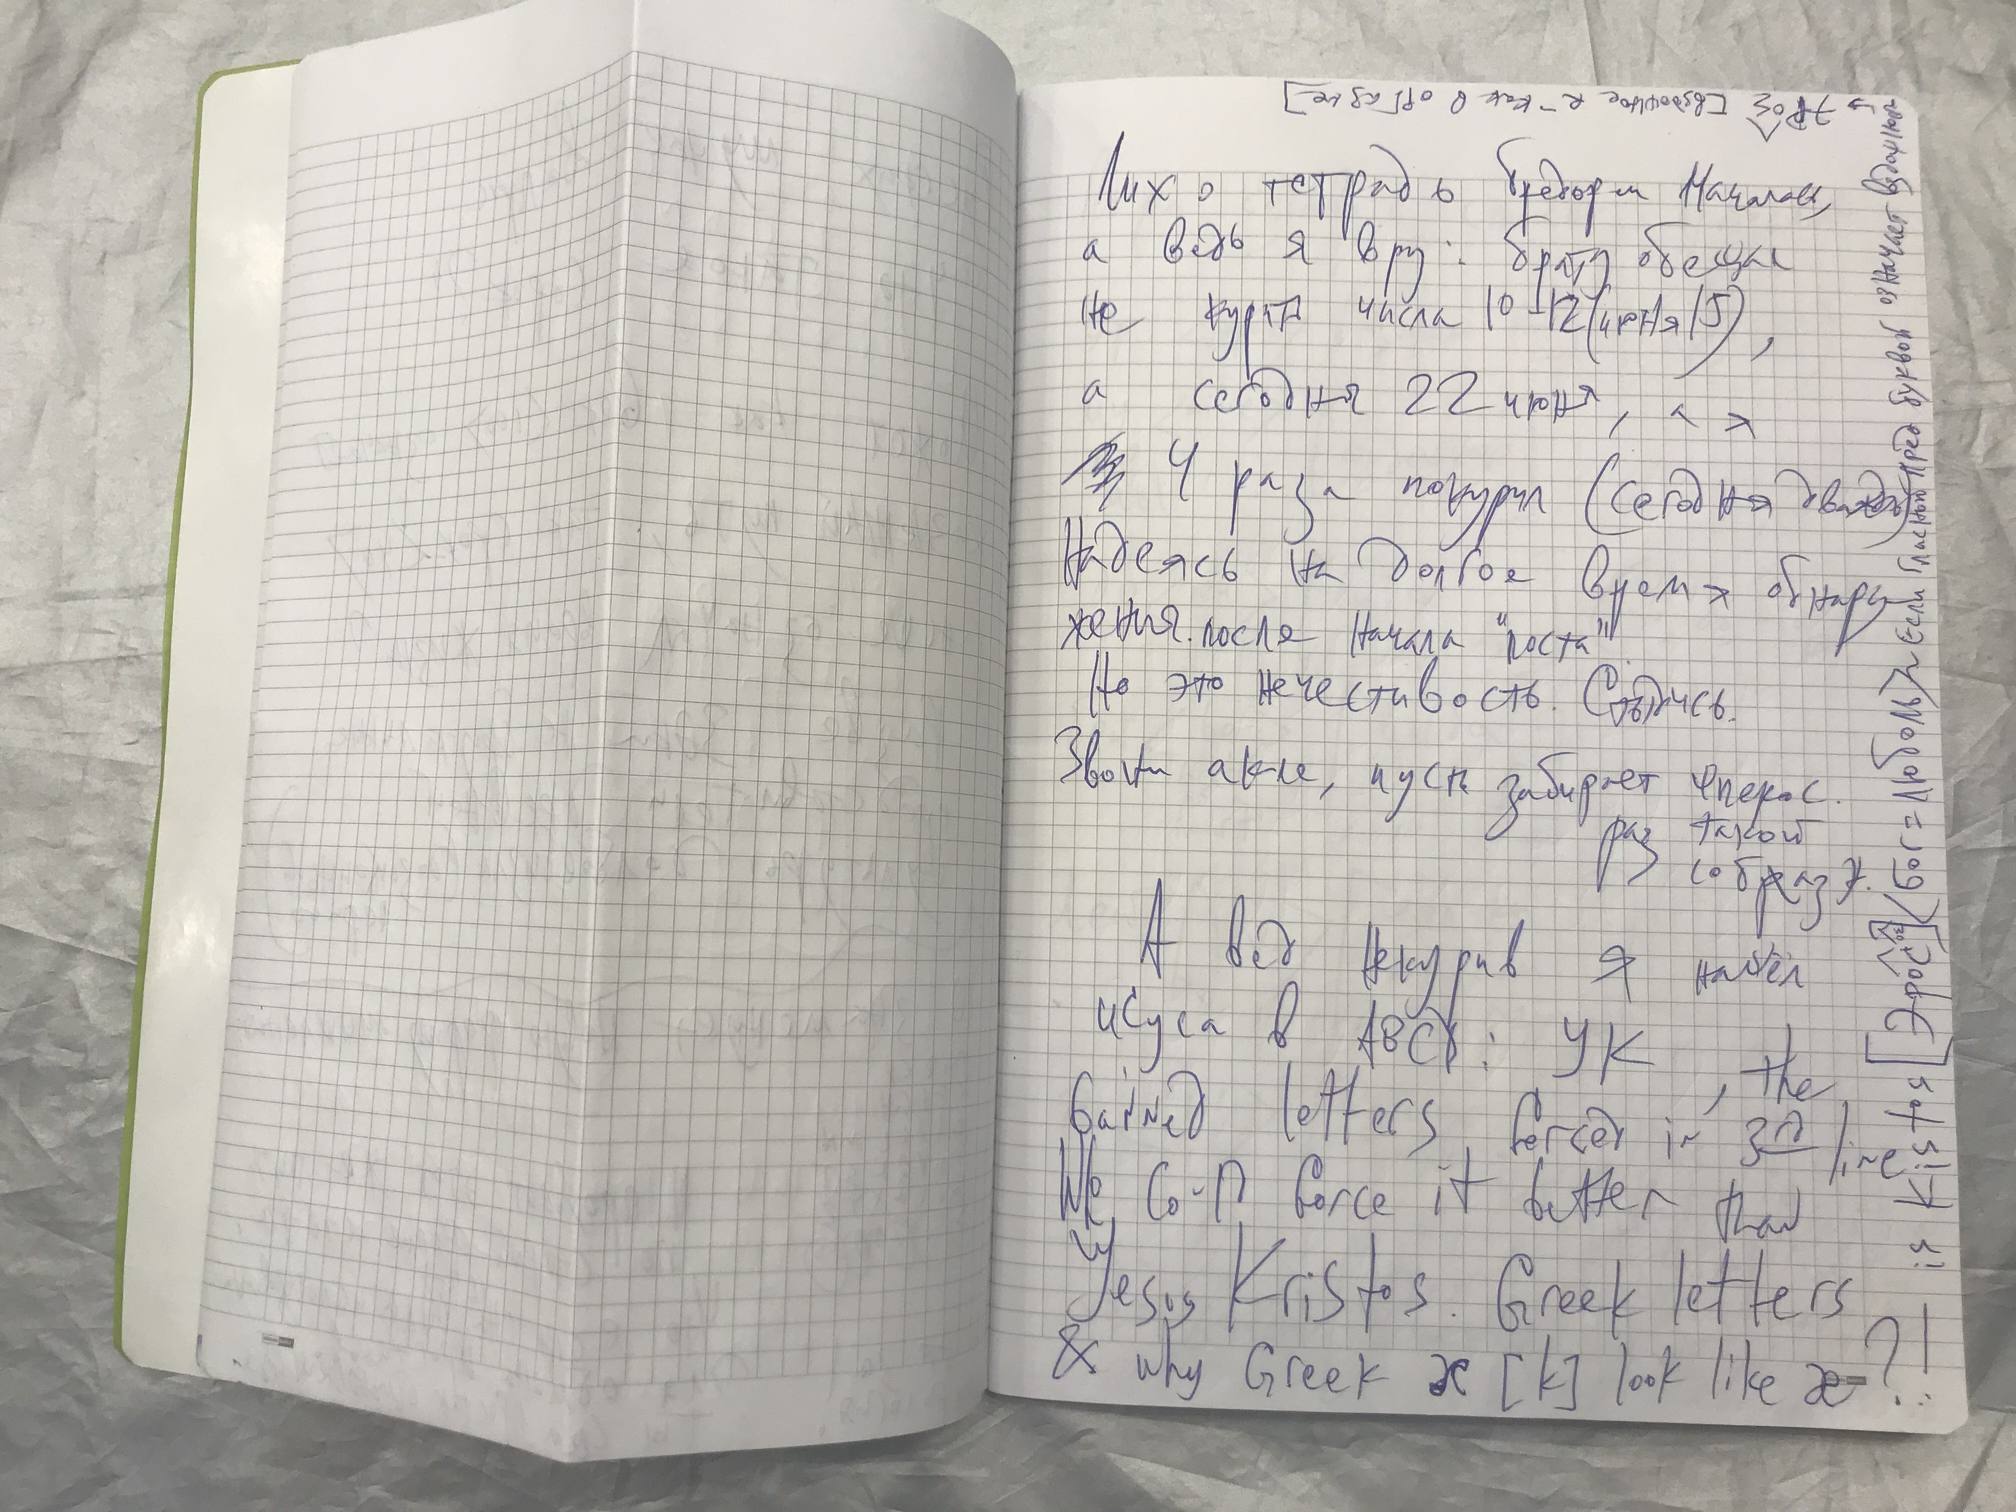 Лихо тетрадь бредом началась,
а ведь я вру: брату обещал
не курить числа 10-12 (июня 15),
а сегодня 22 июня, а я
4 раза покурил (сегодня дважды)
Надеясь на долгое время обнару
жения после начала "поста".
Но это нечестивость. Стыдись.
Звони, пусть забирает
раз такой
собраз я.
А вед некурив я нашёл
исуса в ABCD: УК, the
gained letters forced in 3rd line
We Co-П force it better than
Yesus Kristos. Greek letters
& why Greek ϰ [k] look like ϰ ?!
is Kistos [Эрос] (Бог = Любовь) Если гласною пред буквой означает вздох июл
→ [взвошное к как в оргазме]